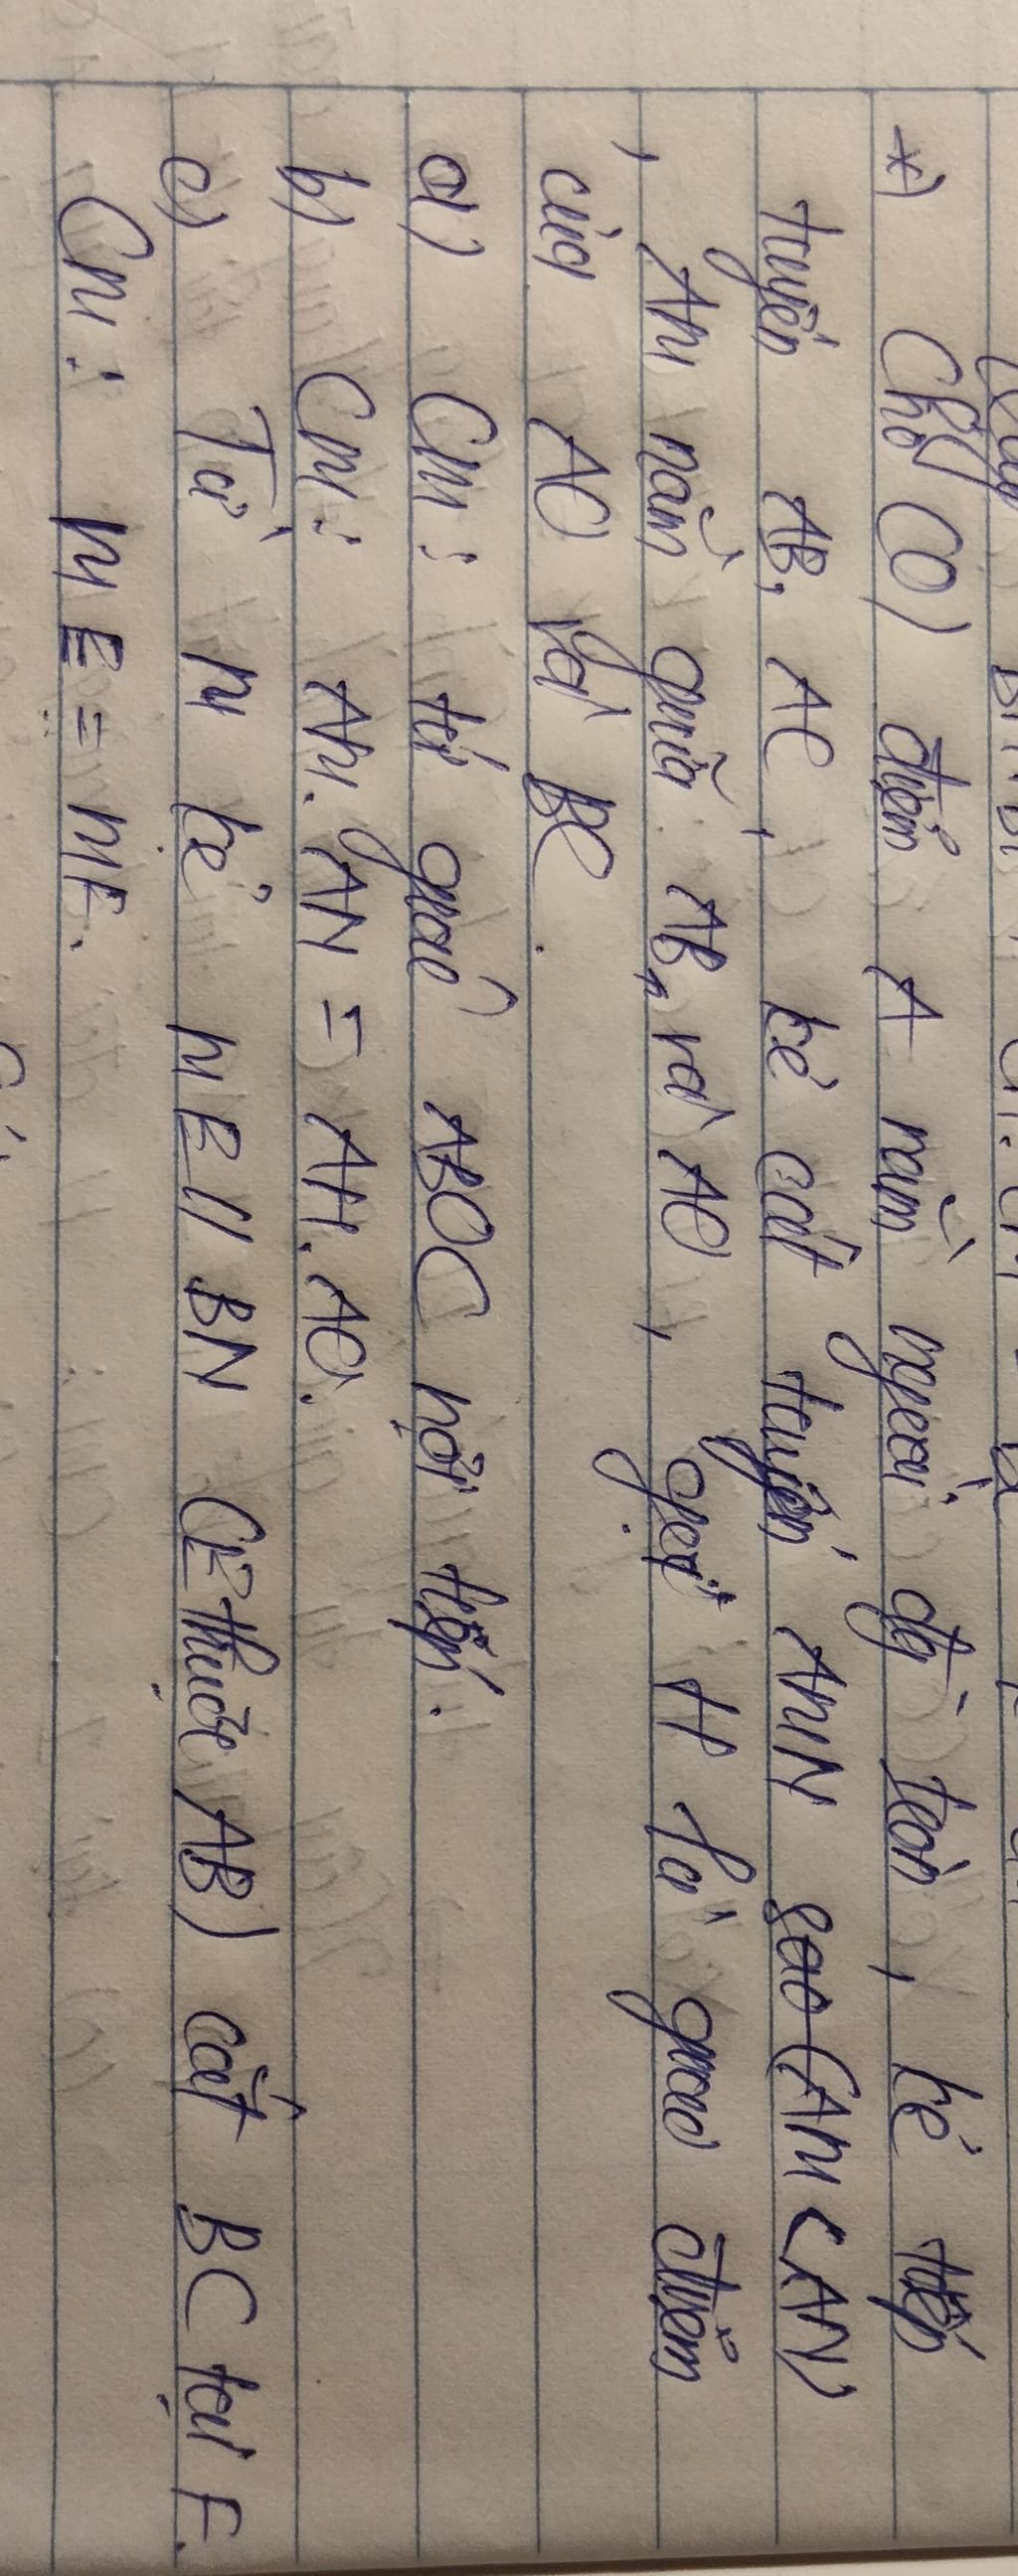 *) Cho (O) điểm A nằm ngoài đg tròn, kẻ tiếp
tuyến AB, AC, kẻ cát tuyến AMN (AM < AN)
, AM nằm giữa AB, và AO, gọi H là giao điểm
của AO và BC.
a) Cm: tứ giác ABOC nội tiếp.
b) Cm: AM. AN = AH. AO.
c) Từ M kẻ ME // BN (E thuộc AB) cắt BC tại F.
Cm: ME = MF.